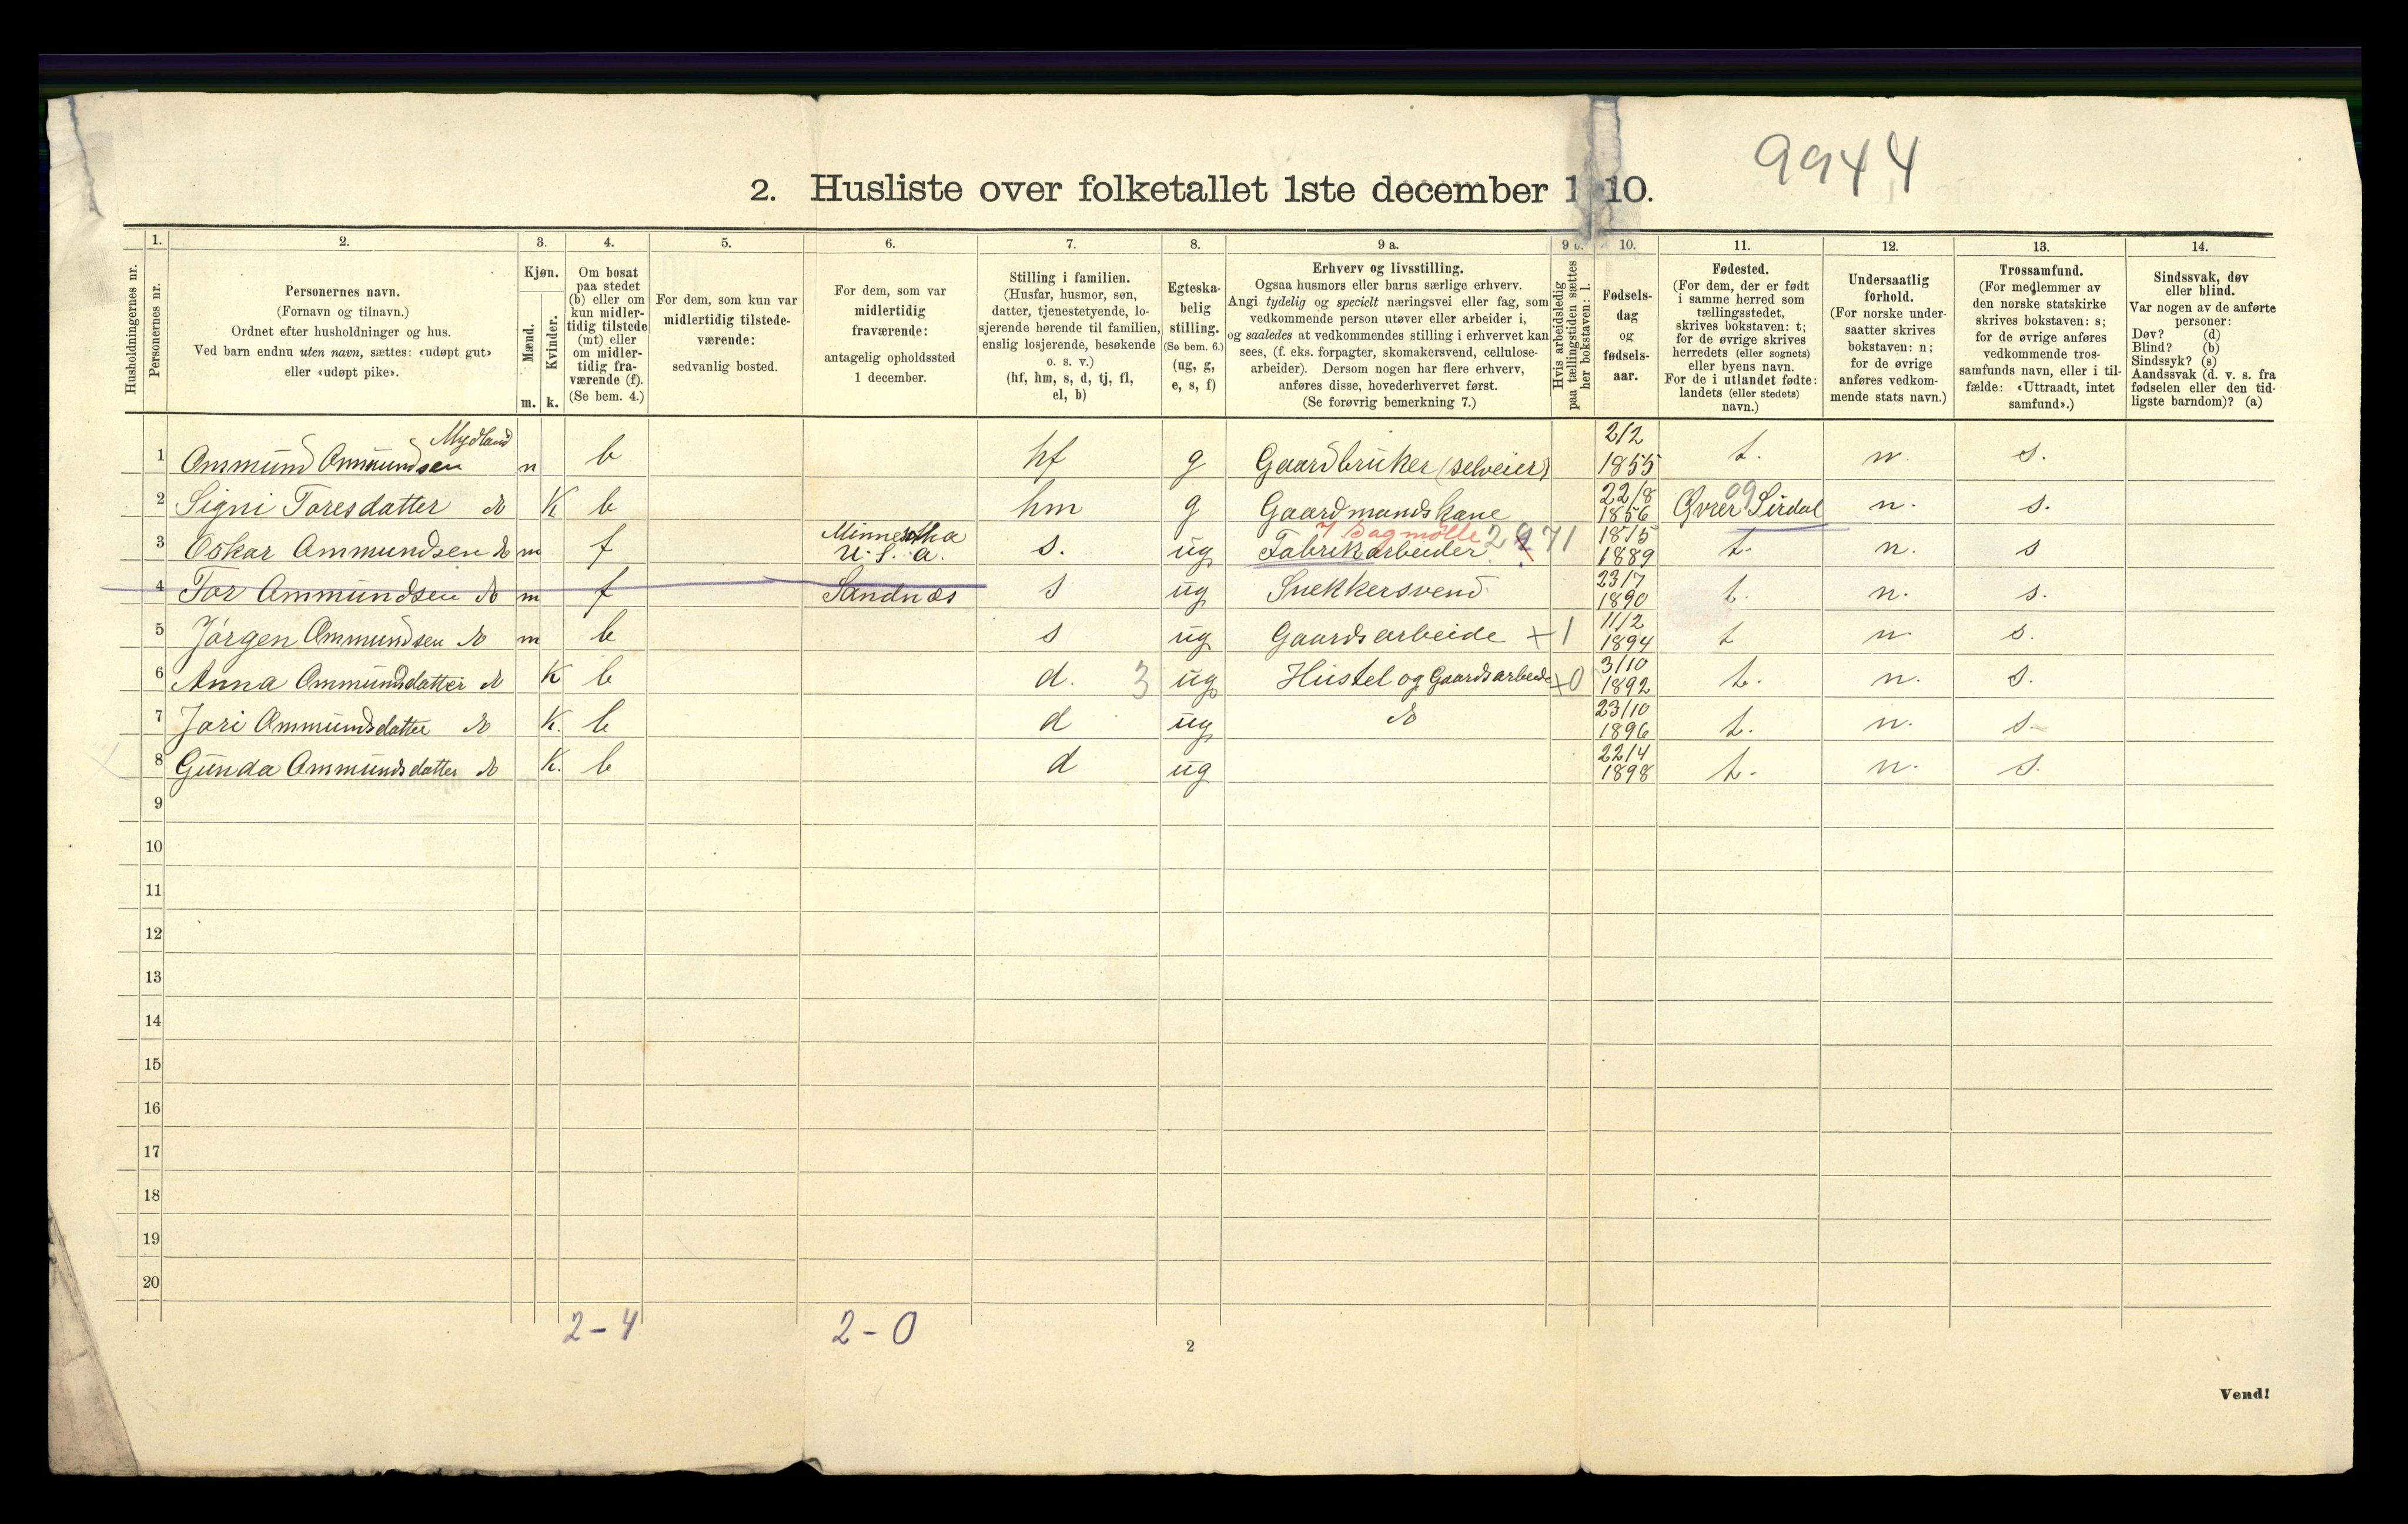 9944
2. Husliste over folketallet 1ste december 1 10.
1. 2. 3. 4. 5. 6. 7. 8. 9 a. 9 b. 10. 11. 12. 13. 14.
Husholdningernes nr.
Personernes nr.
Personernes navn.
(Fornavn og tilnavn.)
Ordnet efter husholdninger og hus.
Ved barn endnu uten navn, sættes: «udøpt gut»
eller «udøpt pike».
Kjøn.
Mænd.
Kvinder.
m. k.
Om bosat
paa stedet
(b) eller om
kun midler-
tidig tilstede
(mt) eller
om midler-
tidig fra-
værende (f).
(Se bem. 4.)
For dem, som kun var
midlertidig tilstede-
værende:
sedvanlig bosted.
For dem, som var
midlertidig
fraværende:
antagelig opholdssted
1 december.
Stilling i familien.
(Husfar, husmor, søn,
datter, tjenestetyende, lo-
sjerende hørende til familien,
enslig losjerende, besøkende
o. s. v.)
(hf, hm, s, d, tj, fl,
el, b)
Egteska-
belig
stilling.
(Se bem. 6.)
(ug, g,
e, s, f)
Erhverv og livsstilling.
Ogsaa husmors eller barns særlige erhverv.
Angi tydelig og specielt næringsvei eller fag, som
vedkommende person utøver eller arbeider i,
og saaledes at vedkommendes stilling i erhvervet kan
sees, (f. eks. forpagter, skomakersvend, cellulose-
arbeider). Dersom nogen har flere erhverv,
anføres disse, hovederhvervet først.
(Se forøvrig bemerkning 7.)
Hvis arbeidsledig
paa tællingstiden sættes
her bokstaven: l.
Fødsels-
dag
og
fødsels-
aar.
Fødested.
(For dem, der er født
i samme herred som
tællingsstedet,
skrives bokstaven: t;
for de øvrige skrives
herredets (eller sognets)
eller byens navn.
For de i utlandet fødte:
landets (eller stedets)
navn.)
Undersaatlig
forhold.
(For norske under-
saatter skrives
bokstaven: n;
for de øvrige
anføres vedkom-
mende stats navn.)
Trossamfund.
(For medlemmer av
den norske statskirke
skrives bokstaven: s;
for de øvrige anføres
vedkommende tros-
samfunds navn, eller i til-
fælde: «Uttraadt, intet
samfund».)
Sindssvak, døv
eller blind.
Var nogen av de anførte
personer:
Døv? (d)
Blind? (b)
Sindssyk? (s)
Aandssvak (d. v. s. fra
fødselen eller den tid-
ligste barndom)? (a)
Mydland 2/2
1 Ommund Ommundsen m b hf g Gaardbruker (selveier) 1855 t. n. s.
22/8 09
2 Signi Toresdatter do K b hm g Gaardmandskone 1856 Øvre Sirdal n. s.
Minnesotha 7 Dagmølle 2971 18/5
3 Oskar Ammundsen do m f U. S. a. s. ug Fabrikarbeider 1889 t. n. s
23/7
4 Tor Ammundsen do m f Sandnæs s ug Snekkersvend 1890 t. n. s.
11/2
5 Jørgen Ommundsen do m b s ug Gaardsarbeide +1 1894 t n. s.
3/10
6 Anna Ommundsdatter do K b d. 3 ug Hustel og Gaardsarbeide +0 1892 t. n. s.
23/10
7 Jori Ommundsdatter do K. b d ug do 1896 t. n. s.
22/4
8 Gunda Ommundsdatter do K. b d ug 1898 t. n. s.
9
10
11
12
13
14
15
16
17
18
19
20
2-4 2-0
2
Vend!